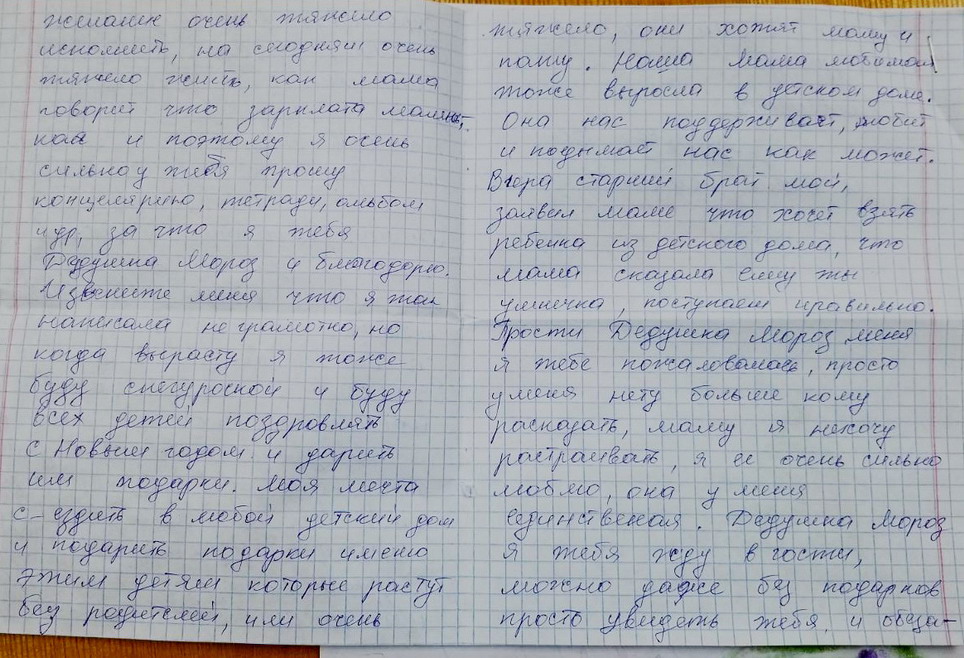 желание очень тяжело
исполнить, на сегодняш очень
тяжело жить, как мама
говорит что зарплата малень,
кая и поэтому я очень
сильно у тебя прошу
концелярию, тетради, альбом
и др, за что я тебя
Дедушка Мороз и благодорю.
Извените меня что я так
написала не грамотно, но
когда вырасту я тоже
буду снегурочкой и буду
всех детей поздровлять
с Новым годом и дарить
им подарки. Моя мечта
с-ездить в любой детский дом
и подарить подарки имено
этим детям которые растут
без родителей, или очень
тяжело, они хотят маму и
папу. Наша мама любимая
тоже выросла в дском доме.
Она нас поддерживает, любит
и подымает нас как может.
Вчера старший брат мой,
заявил маме что хочет взять
ребенка из детского дома, что
мама сказала ему ты
умничка, поступаеш правильно.
Прости Дедушка Мороз меня
я тебе пожаловалась, просто
у меня нету больше кому
расказать, маму я нехочу
растраивать, я ее очень сильно
люблю, она у меня
единственая. Дедушка Мороз
я тебя жду в гости,
можно даже без подарков
просто увидеть тебя, и обеща-